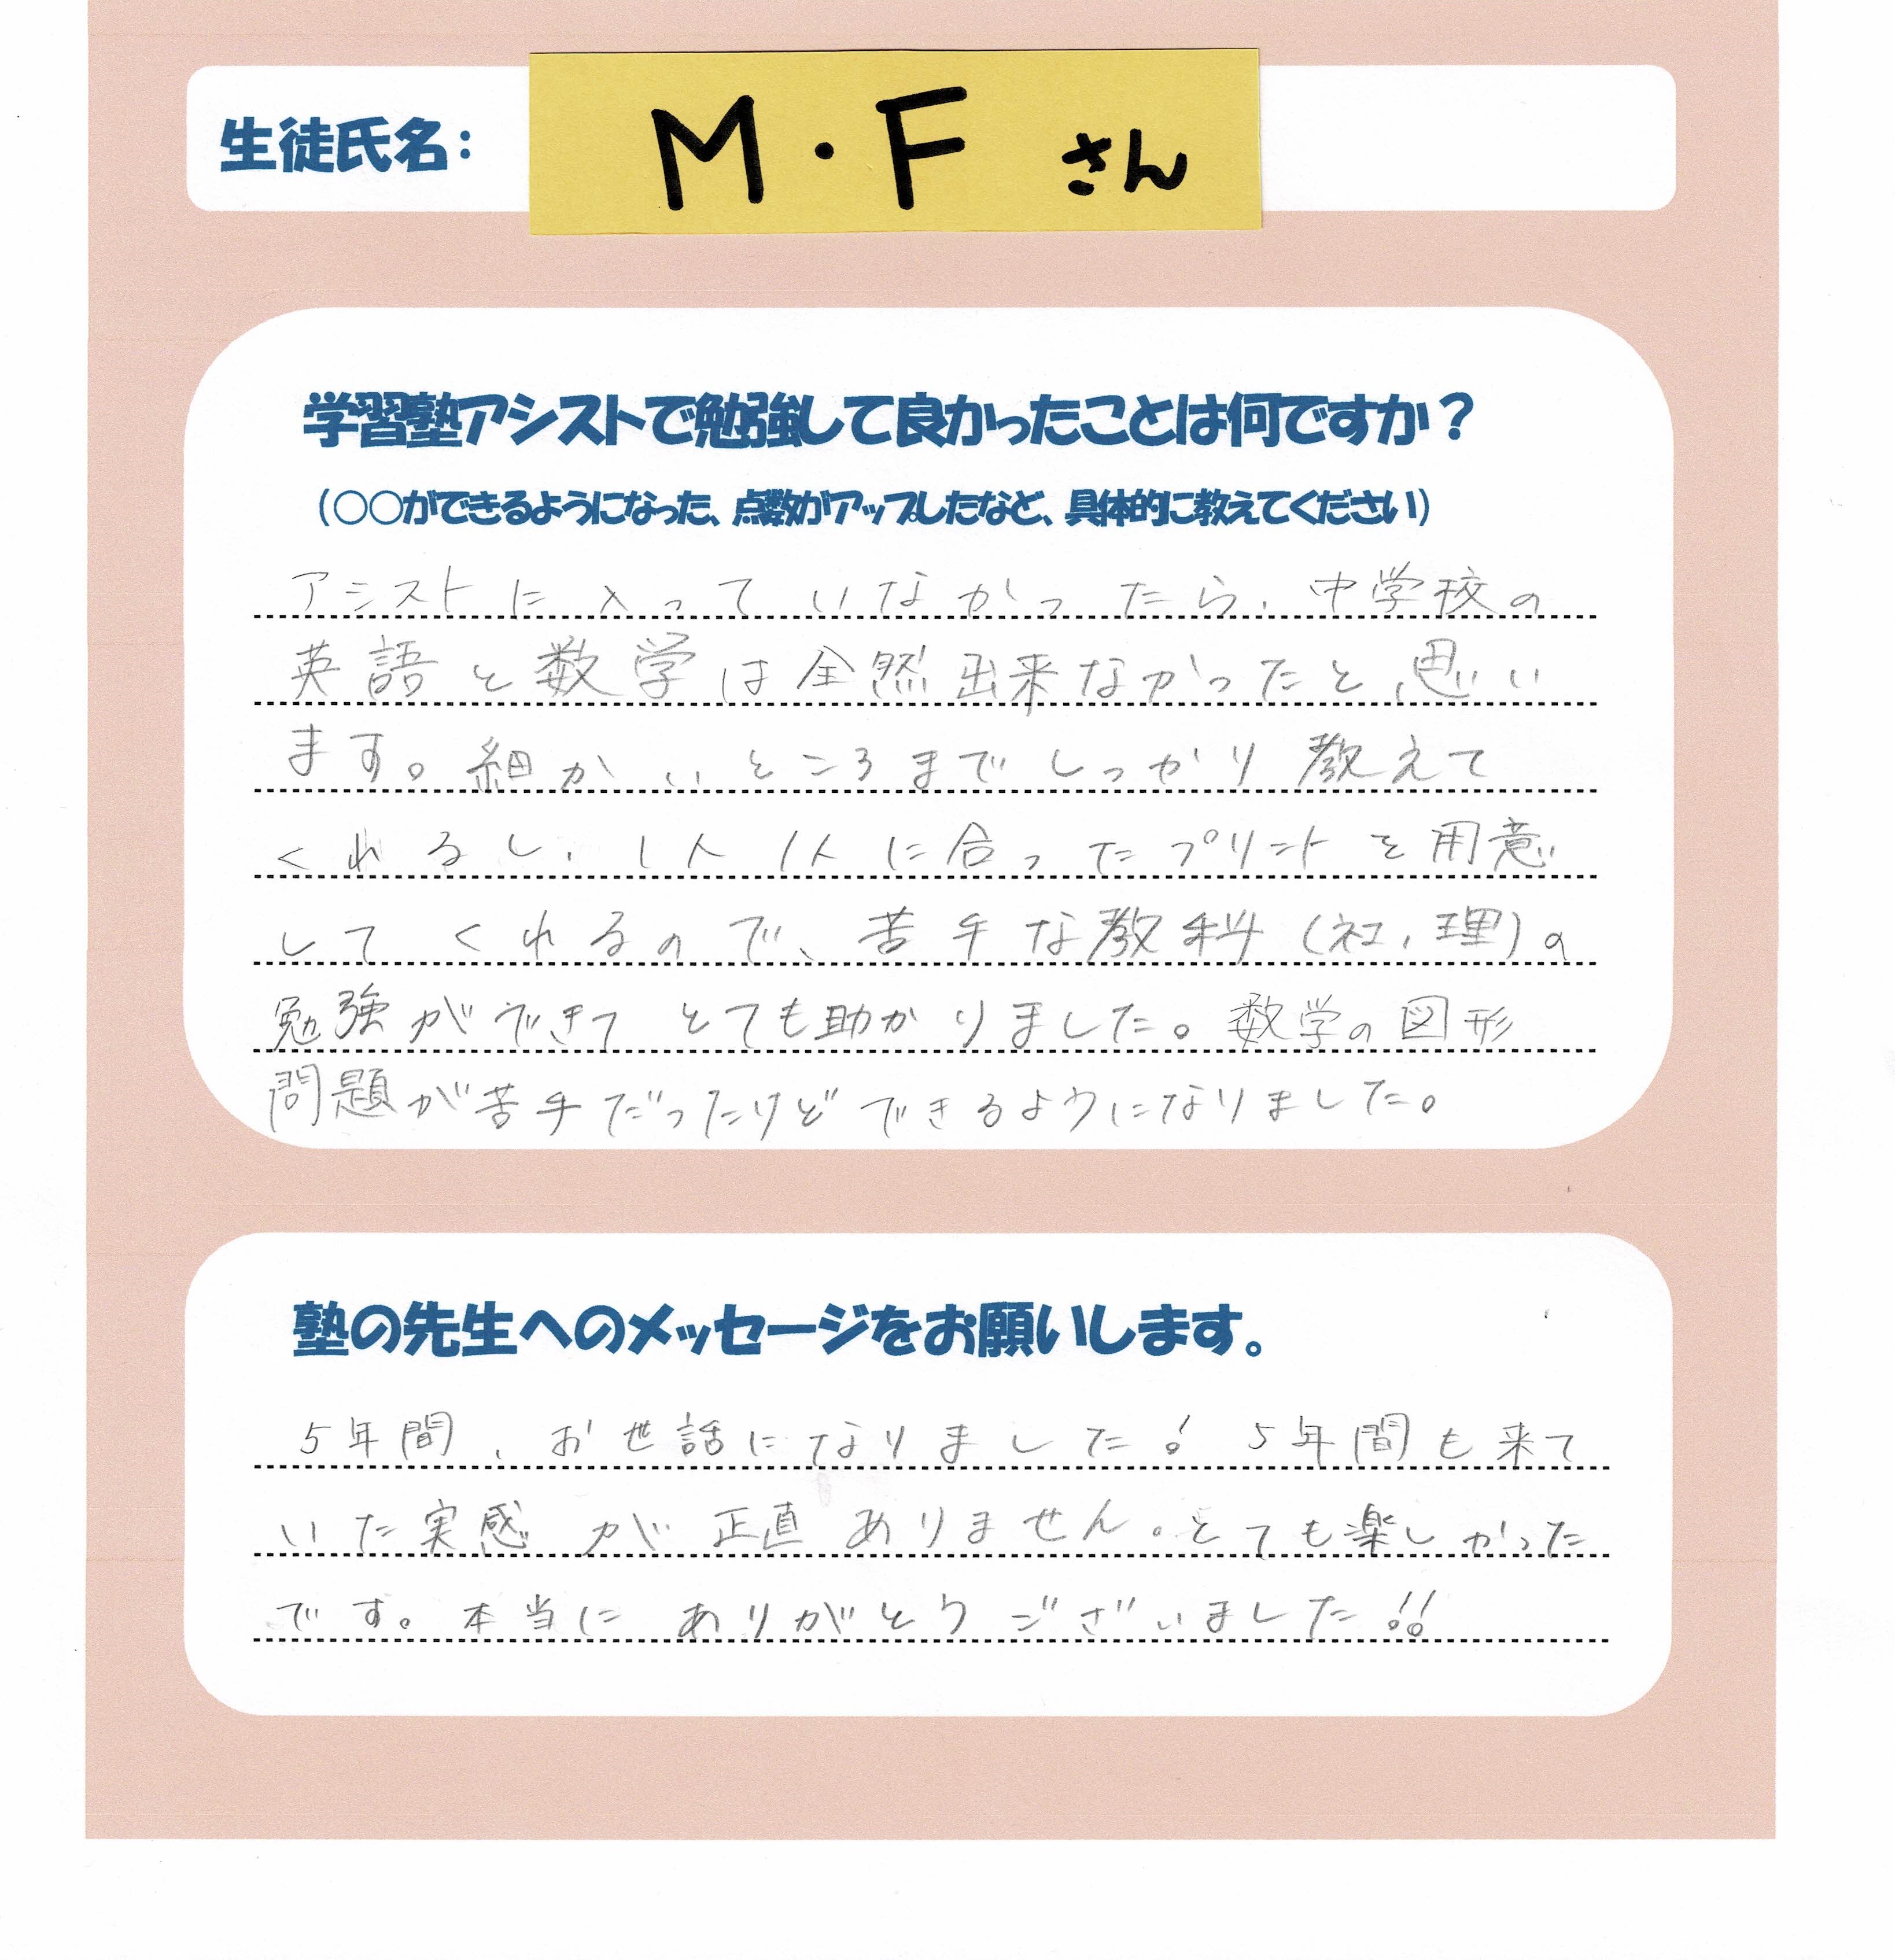 生徒氏名：
M・F さん
学習塾アシストで勉強して良かったことは何ですか？
（○○ができるようになった、点数がアップしたなど、具体的に教えてください）
アシストに入っていなかったら、中学校の
英語と数学は全然出来なかったと思い
ます。細かいところまでしっかり教えて
くれるし、1人1人に合ったプリントを用意
してくれるので、苦手な教科（社、理）の
勉強ができてとても助かりました。数学の図形
問題が苦手だったけどできるようになりました。
塾の先生へのメッセージをお願いします。
5年間、お世話になりました！5年間も来て
いた実感が正直ありません。とても楽しかった
です。本当にありがとうございました!!